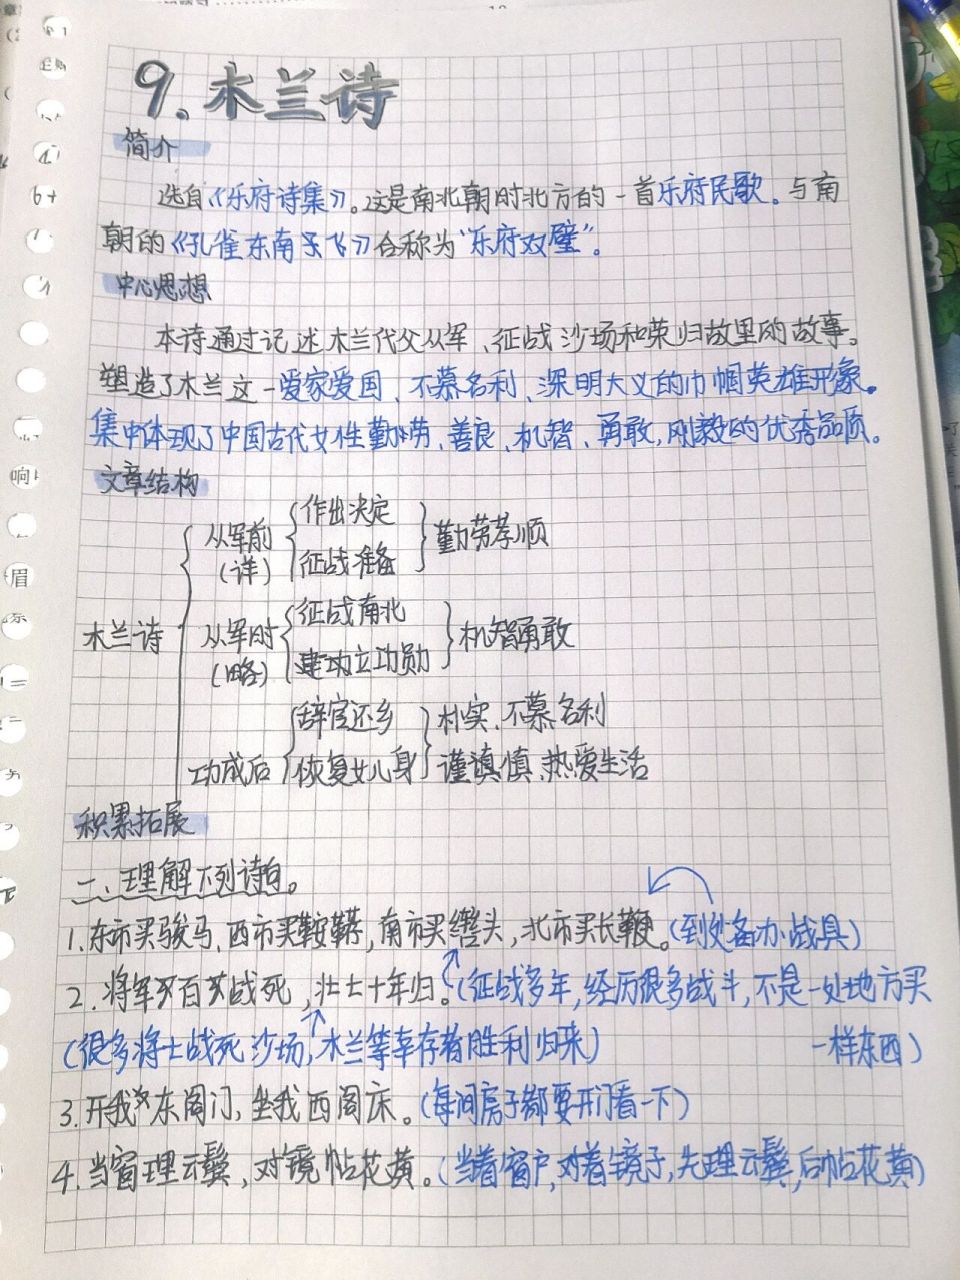 9. 木兰诗
简介
选自《乐府诗集》。这是南北朝时北方的一首乐府民歌。与南
朝的《孔雀东南飞》合称为“乐府双璧”。
中心思想
本诗通过记述木兰代父从军、征战沙场和荣归故里的故事。
塑造了木兰这一爱家爱国、不慕名利、深明大义的巾帼英雄形象。
集中体现了中国古代女性勤劳、善良、机智、勇敢,刚毅的优秀品质。
文章结构
木兰诗
从军前
(详)
作出决定
征战准备
勤劳孝顺
从军时
(略)
征战南北
建功立功勋
机智勇敢
功成后
辞官还乡
恢复女儿身
朴实、不慕名利
谨慎、热爱生活
积累拓展
二、理解下列诗句。
1.东市买骏马,西市买鞍鞯,南市买辔头,北市买长鞭。(到处备办战具)
2.将军百战死,壮士十年归。(征战多年,经历很多战斗,不是一处地方买
一样东西)
(很多将士战死沙场,木兰等幸存者胜利归来)
3.开我东阁门,坐我西阁床。(每间房子都要开门看一下)
4.当窗理云鬓,对镜帖花黄。(当着窗户,对着镜子,先理云鬓,后帖花黄)
6+
响
眉